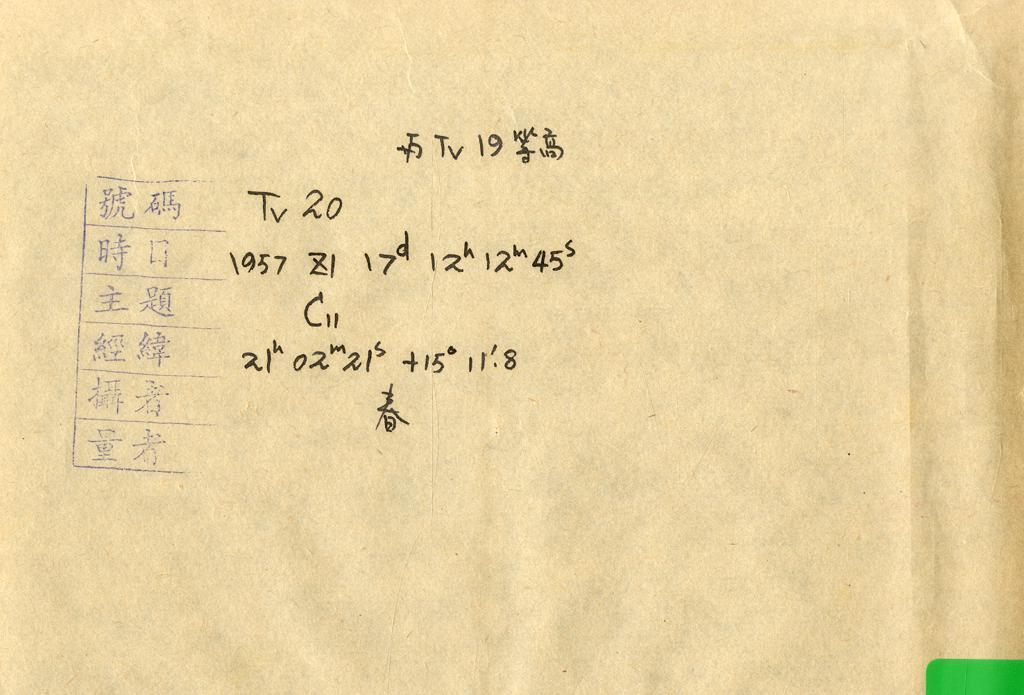 与 Tv 19 等高
號碼 Tv 20
時日 1957 XI 17ᵈ 12ʰ 12ᵐ 45ˢ
主題 C11
經緯 21ʰ 02ᵐ 21ˢ +15° 11′.8
攝者 春
量者